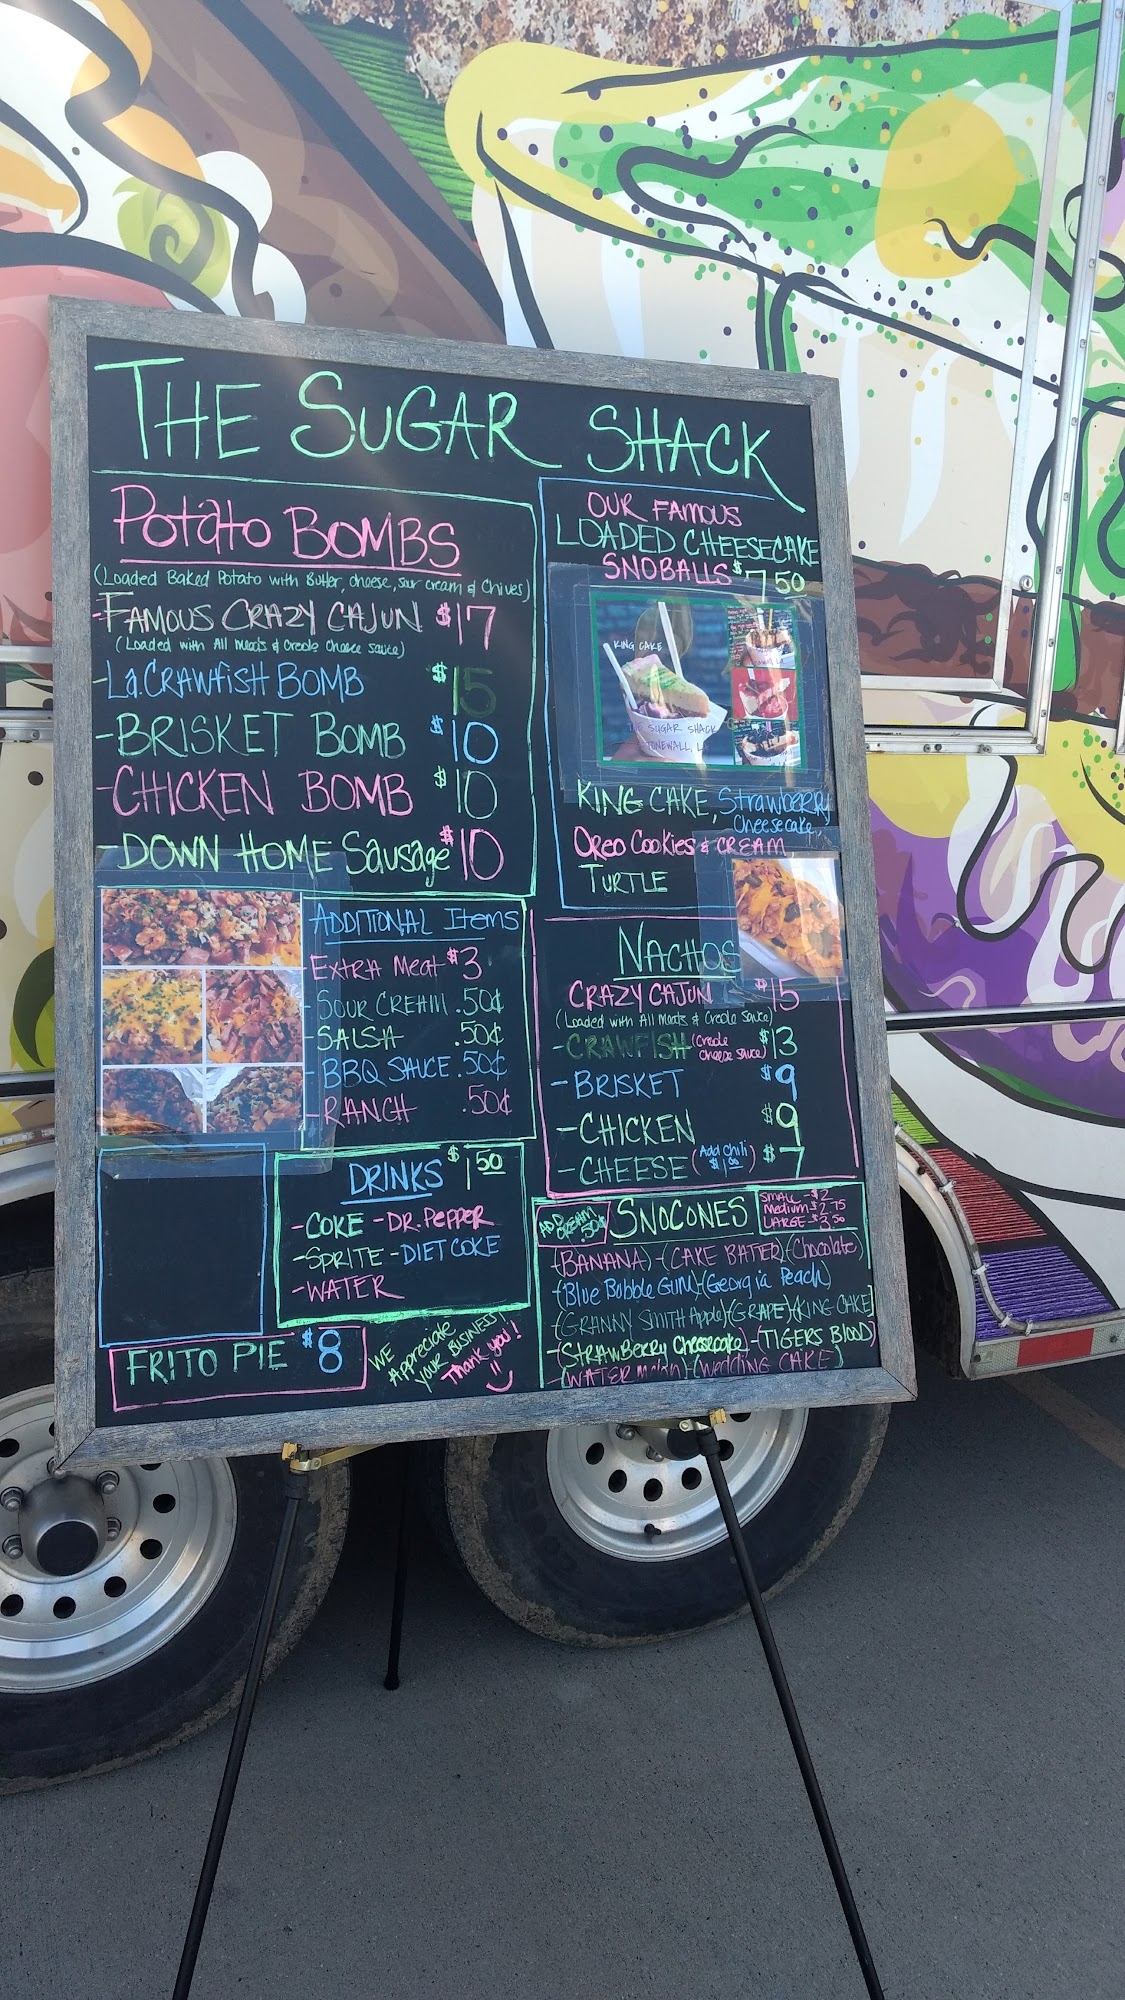 THE SUGAR SHACK
Potato BOMBS
(Loaded Baked Potato with Butter, cheese, sour cream & Chives)
-FAMOUS CRAZY CAJUN $17
(Loaded with All Meats & Creole Cheese Sauce)
-La. CRAWfISH BOMB $15
-BRISKET BOMB $10
-CHICKEN BOMB $10
-DOWN HOME Sausage $10
ADDITIONAL Items
-EXTRA Meat $3
-SOUR CREAM .50¢
-SALSA .50¢
-BBQ SAUCE .50¢
-RANCH .50¢
DRINKS $1.50
-COKE -DR. PEPPER
-SPRITE -DIET COKE
-WATER
FRITO PIE $8
WE
Appreciate
YOUR BUSINESS!
Thank you!
OUR FAMOUS
LOADED CHEESECAKE
SNOBALLS $7.50
KING CAKE
THE SUGAR SHACK
STONEWALL, LA
KING CAKE, Strawberry
Cheesecake,
OREO COOKIES & CREAM
TURTLE
NACHOS
CRAZY CAJUN $15
(Loaded with All Meats & Creole Sauce)
-CRAWFISH (Creole cheese sauce) $13
-BRISKET $9
-CHICKEN $9
-CHEESE (Add Chili $1.00) $7
ADD CREAM 50¢
SNOCONES
SMALL-$2
Medium-$2.75
LARGE-$3.50
-(BANANA)-(CAKE BATTER)-(Chocolate)
-(Blue Bubble GUM)-(Georgia Peach)
-(GRANNY SMITH Apple)-(GRAPE)-(KING CAKE)
-(STRAWBERRY Cheesecake)-(TIGERS BLOOD)
-(WATERmelon)-(Wedding CAKE)